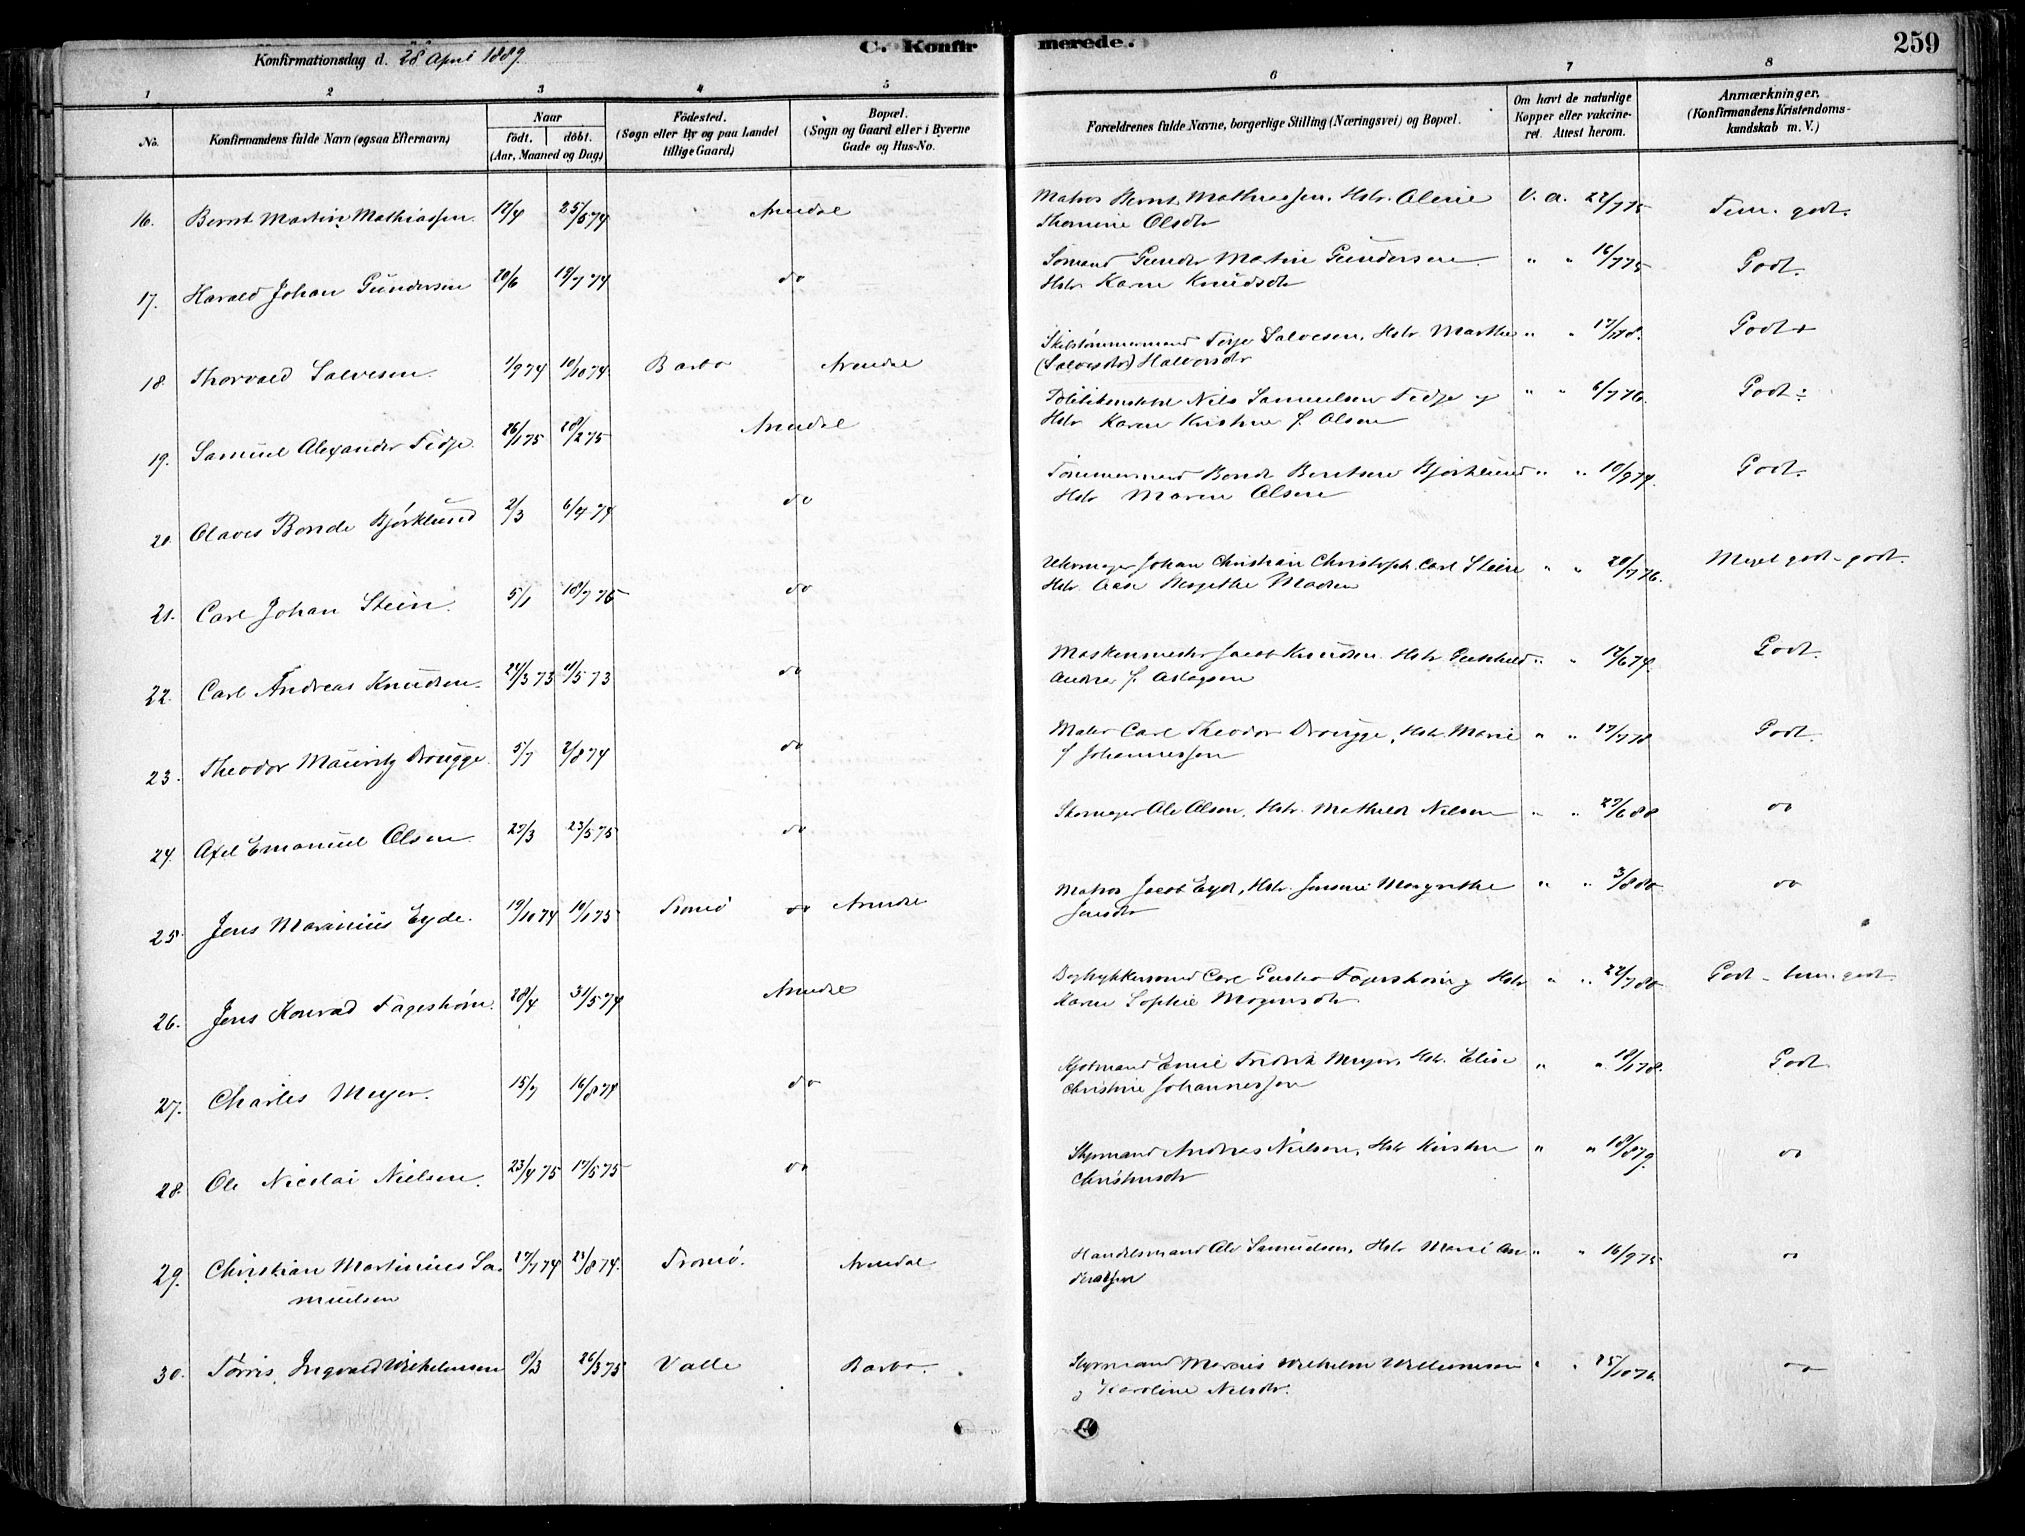 Konfirmationsdag d. 28 April 1889. C. Konfirmerede. 259
1 2 3 4 5 6 7 8
No. Konfirmandens fulde Navn (ogsaa Efternavn) Naar født. døbt. (Aar, Maaned og Dag) Fødested. (Sogn eller By og paa Landet tillige Gaard) Bopæl. (Sogn og Gaard eller i Byerne Gade og Hus-No. Forældrenes fulde Navne, borgerlige Stilling (Næringsvei) og Bopæl. Om havt de naturlige Kopper eller vakcineret. Attest herom. Anmærkninger. (Konfirmandens Kristendomskundskab m. V.)
16. Bernt Martin Mathiassen 12/4 25/5 74 Arendal Matros Bernt Mathiassen, Hstr. Oline V. a. 22/7 75 Tem. godt.
Thomine Olsdtr
17. Harald Johan Gundersen 20/6 19/7 74 do Sømand Gunder Martin Gundersen " " 16/7 75 Godt.
Hstr Karen Knudsdtr
18. Thorvald Salvesen. 1/9 74 10/10 74 Barbo Arendal Skibstømmermand Terje Salvesen, Hstr. Marthe " " Godt +
(Salvesdtr) Halvorsdtr
19. Samuel Alexander Fidje. 26/1 75 28/2 75 Arendal Nils Samuelsen Fidje og " " 6/7 76. Godt ÷
Hstr Karen Kristine f. Olsen
20. Olaves Bonde Bjørklund 2/3 6/4 74 do Tømmermand Bonde Berntsen Bjørklund " " 10/9 74. Godt.
Hstr Maren Olsen
21. Carl Johan Stein. 5/1 18/7 75 do Uhrmager Johan Christian Christoph Carl Stein " " 20/7 76. Meget godt - godt.
Hstr. Aase Margethe Madsen
22. Carl Andreas Knudsen. 24/3 73 11/5 73 do Maskinmester Jacob Knudsen. Hstr Gunhild " " 12/6 74. Godt.
Andrea f. Aslagsen
23. Theodor Mauritz Drougge. 5/7 2/8 74 do Maler Carl Theodor Drougge, Hstr. Marie " " 17/7 78 Godt.
f Johannessen
24. Axel Emanuel Olsen. 29/3 23/5 75 do Skomager Ole Olsen, Hstr. Mathilde Nilsen " " 29/6 88 do
25. Jens Marinius Eyde. 19/10 74 10/1 75 Tromø do Arendal Matros Jacob Eyde, Hstr. Jensine Margrethe " " 3/8 80 do
Jensdtr
26. Jens Konrad Fagerstrøm. 28/4 31/5 74 Arendal Carl Gustav Fagerstrøm og Hstr " " 22/7 80 Godt - tem. godt
Karen Sophie Mogensdtr
27. Charles Meyer. 15/7 16/8 74 do Emil Fredrik Meyer, Hstr. Elise " " 18/1 78. Godt
Christine Johannessen
28. Ole Nicolai Nielsen. 23/4 75 17/5 75 do Styrmand Andreas Nielsen, Hstr Kirstine " " 18/8 79. do
Christensdtr
29. Christian Martinius Sa- 17/7 74 23/8 74. Tromø. Arendal Handelsmand Ole Samuelsen, Hstr Marie An- " " 16/9 75 do
muelsen dreassen
30. Tørris Ingvald Wilhelmsen 8/3 26/3 75 Valle Barbo. Styrmand Marius Wilhelm Willumsen " " 25/10 76. do
og Karoline Nilsdtr.